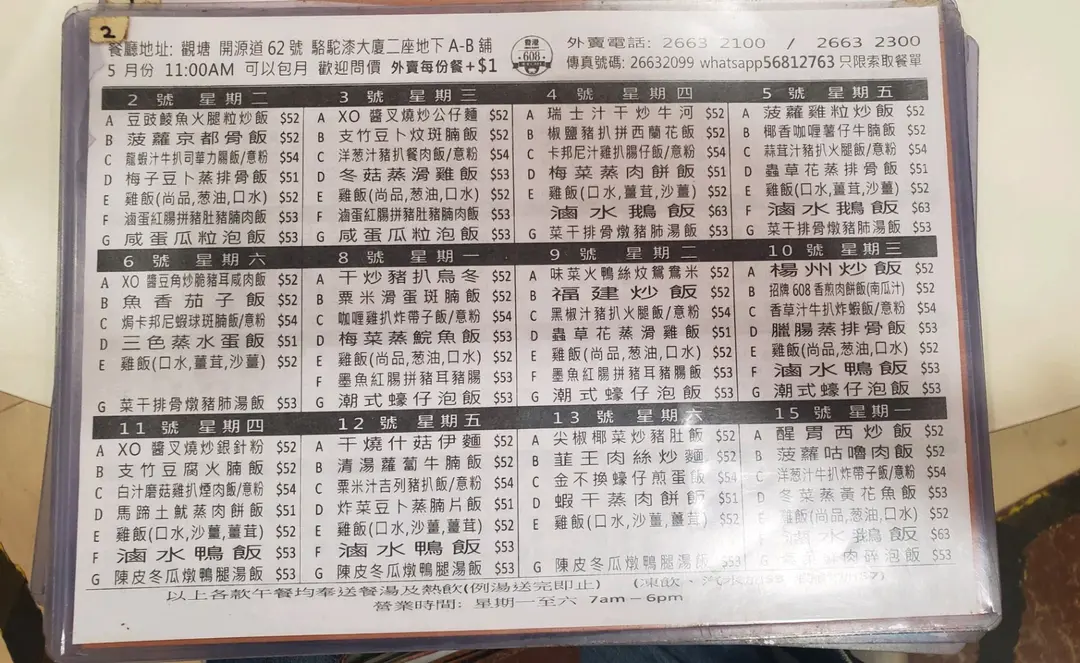 2
餐廳地址: 觀塘 開源道 62 號 駱駝漆大廈二座地下 A-B 舖
5 月份 11:00AM 可以包月 歡迎問價 外賣每份餐+$1
香港
608
外賣電話: 2663 2100 / 2663 2300
傳真號碼: 26632099 whatsapp56812763 只限索取餐單
2 號 星期二
A 豆豉鯪魚火腿粒炒飯 $52
B 菠蘿京都骨飯 $52
C 龍蝦汁牛扒司華力腸飯/意粉 $54
D 梅子豆卜蒸排骨飯 $51
E 雞飯(尚品,葱油,口水) $52
F 滷蛋紅腸拼豬肚豬腩肉飯 $53
G 咸蛋瓜粒泡飯 $53
3 號 星期三
A XO 醬叉燒炒公仔麵 $52
B 支竹豆卜炆斑腩飯 $52
C 洋葱汁豬扒餐肉飯/意粉 $54
D 冬菇蒸滑雞飯 $53
E 雞飯(尚品,葱油,口水) $52
F 滷蛋紅腸拼豬肚豬腩肉飯 $53
G 咸蛋瓜粒泡飯 $53
4 號 星期四
A 瑞士汁干炒牛河 $52
B 椒鹽豬扒拼西蘭花飯 $52
C 卡邦尼汁雞扒腸仔飯/意粉 $54
D 梅菜蒸肉餅飯 $51
E 雞飯(口水,薑茸,沙薑) $52
F 滷水鵝飯 $63
G 菜干排骨燉豬肺湯飯 $53
5 號 星期五
A 菠蘿雞粒炒飯 $52
B 椰香咖喱薯仔牛腩飯 $52
C 蒜茸汁豬扒火腿飯/意粉 $54
D 蟲草花蒸排骨飯 $51
E 雞飯(口水,薑茸,沙薑) $52
F 滷水鵝飯 $63
G 菜干排骨燉豬肺湯飯 $53
6 號 星期六
A XO 醬豆角炒脆豬耳咸肉飯 $52
B 魚香茄子飯 $52
C 焗卡邦尼蝦球斑腩飯/意粉 $54
D 三色蒸水蛋飯 $51
E 雞飯(口水,薑茸,沙薑) $52
G 菜干排骨燉豬肺湯飯 $53
8 號 星期一
A 干炒豬扒烏冬 $52
B 粟米滑蛋斑腩飯 $52
C 咖喱雞扒炸帶子飯/意粉 $54
D 梅菜蒸鯇魚飯 $53
E 雞飯(尚品,葱油,口水) $52
F 墨魚紅腸拼豬耳豬腸 $53
G 潮式蠔仔泡飯 $53
9 號 星期二
A 味菜火鴨絲炆鴛鴦米 $52
B 福建炒飯 $52
C 黑椒汁豬扒火腿飯/意粉 $54
D 蟲草花蒸滑雞飯 $51
E 雞飯(尚品,葱油,口水) $52
F 墨魚紅腸拼豬耳豬腸飯 $53
G 潮式蠔仔泡飯 $53
10 號 星期三
A 楊州炒飯 $52
B 招牌 608 香煎肉餅飯(南瓜汁) $52
C 香草汁牛扒炸蝦飯/意粉 $54
D 臘腸蒸排骨飯 $53
E 雞飯(尚品,葱油,口水) $52
F 滷水鴨飯 $53
G 潮式蠔仔泡飯 $53
11 號 星期四
A XO 醬叉燒炒銀針粉 $52
B 支竹豆腐火腩飯 $52
C 白汁磨菇雞扒煙肉飯/意粉 $54
D 馬蹄土魷蒸肉餅飯 $51
E 雞飯(口水,沙薑,薑茸) $52
F 滷水鴨飯 $53
G 陳皮冬瓜燉鴨腿湯飯 $53
12 號 星期五
A 干燒什菇伊麵 $52
B 清湯蘿蔔牛腩飯 $52
C 粟米汁吉列豬扒飯/意粉 $54
D 炸菜豆卜蒸腩片飯 $51
E 雞飯(口水,沙薑,薑茸) $52
F 滷水鴨飯 $53
G 陳皮冬瓜燉鴨腿湯飯 $53
13 號 星期六
A 尖椒椰菜炒豬肚飯 $52
B 韮王肉絲炒麵 $52
C 金不換蠔仔煎蛋飯 $54
D 蝦干蒸肉餅飯 $51
E 雞飯(口水,沙薑,薑茸) $52
G 陳皮冬瓜燉鴨腿湯飯 $53
15 號 星期一
A 醒胃西炒飯 $52
B 菠蘿咕嚕肉飯 $52
C 洋葱汁牛扒炸帶子飯/意粉 $54
D 冬菜蒸黃花魚飯 $53
E 雞飯(尚品,葱油,口水) $52
F 滷水鵝飯 $63
G 肉碎泡飯 $53
以上各款午餐均奉送餐湯及熱飲(例湯送完即止) (凍飲、汽水加$3
營業時間: 星期一至六 7am – 6pm